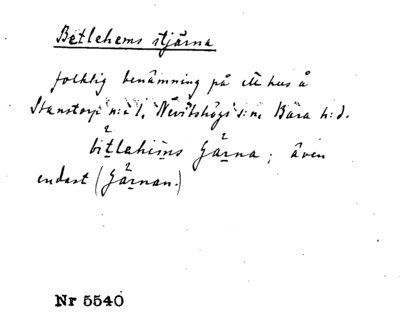 Betlehems stjärna
folklig benämning på ett hus å
Stanstorp n:o 1, Nevitshögs s:n, Bara h:d.
bitlehims Gärna; även
endast (Gärnan.)
Nr 5540